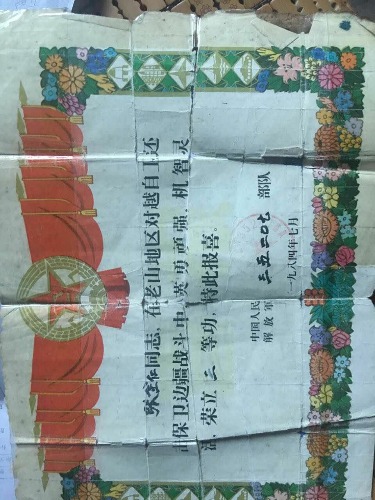 同志，在老山地区对越自卫还
击保卫边疆战斗中，英勇顽强，机智灵
活，荣立三等功，特此报喜。
中国人民
解放军 三五二〇七 部队
一九八四年七月